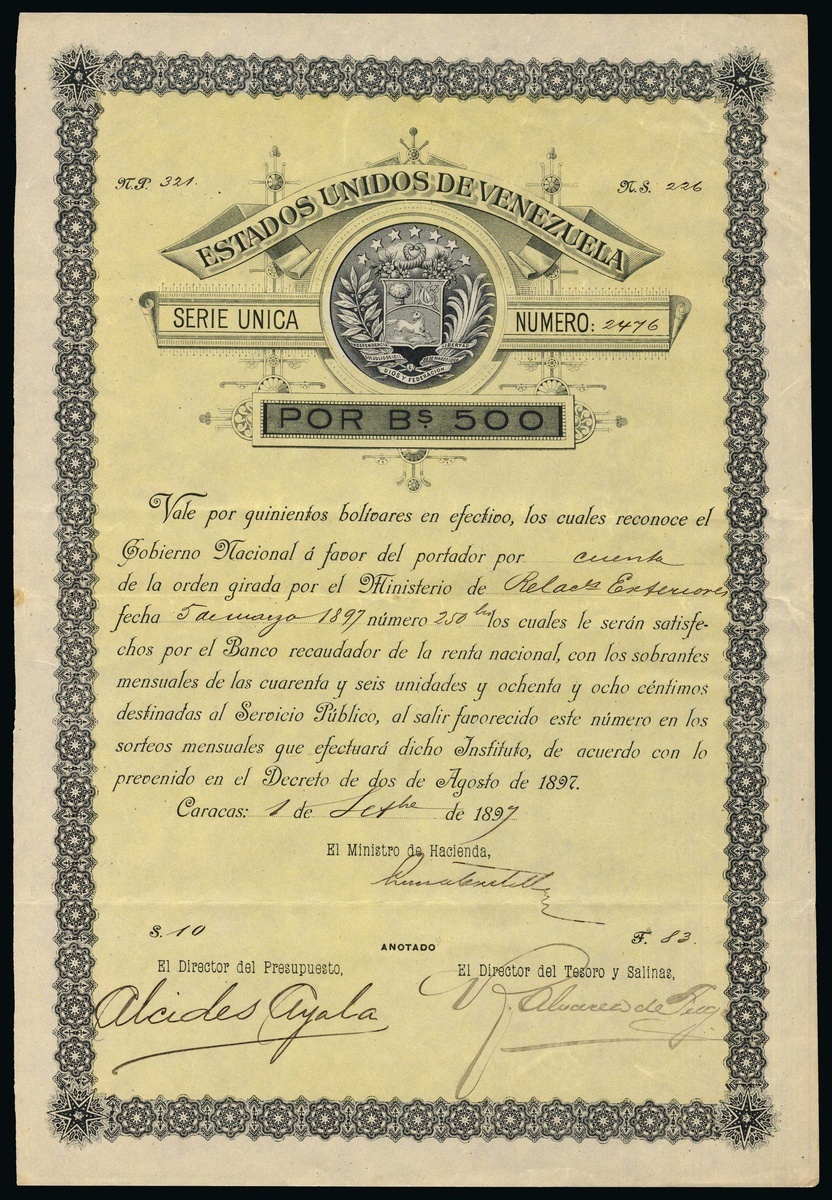 N.P. 321.
N.S. 226
ESTADOS UNIDOS DE VENEZUELA
SERIE UNICA
NUMERO: 2476
INDEPENDENCIA
LIBERTAD
DIOS Y FEDERACION
POR Bs. 500
Vale por quinientos bolívares en efectivo, los cuales reconoce el
Gobierno Nacional á favor del portador por cuenta
de la orden girada por el Ministerio de Relacs Exteriores
fecha 5 de marzo 1897 número 250 los cuales le serán satisfe-
chos por el Banco recaudador de la renta nacional, con los sobrantes
mensuales de las cuarenta y seis unidades y ochenta y ocho céntimos
destinadas al Servicio Público, al salir favorecido este número en los
sorteos mensuales que efectuará dicho Instituto, de acuerdo con lo
prevenido en el Decreto de dos de Agosto de 1897.
Caracas: 1 de Setbe de 1897
El Ministro de Hacienda,
S. 10
F. 83.
ANOTADO
El Director del Presupuesto,
El Director del Tesoro y Salinas,
Alcides Ayala
Alvarez de